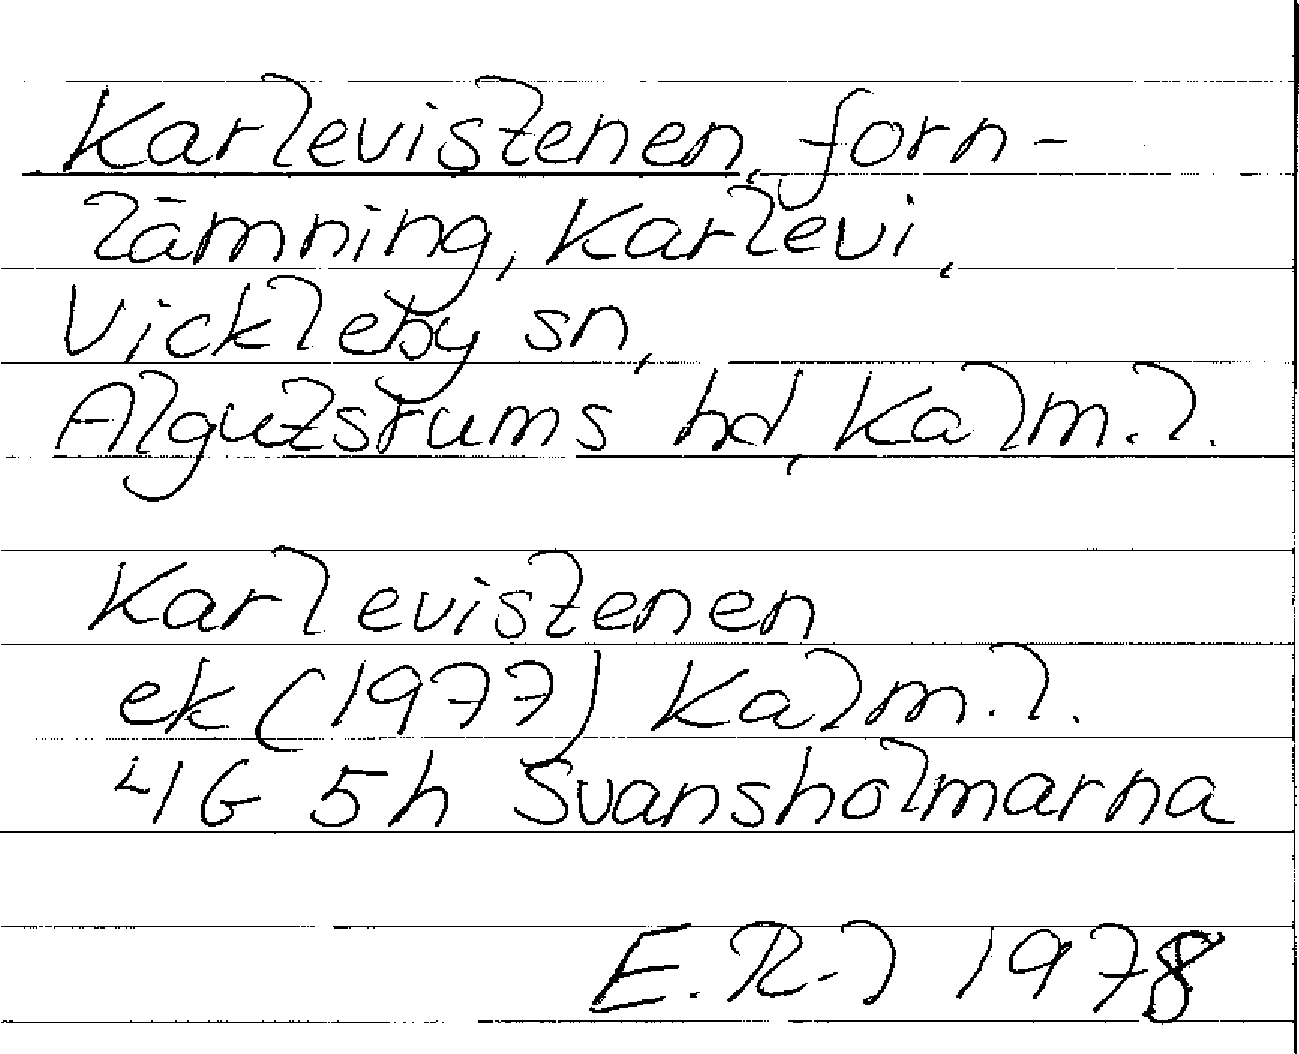 Karlevistenen, forn-
lämning, Karlevi,
Vickleby sn,
Algutsrums hd, Kalm. l.
Karlevistenen
ek (1977) Kalm. l.
4G 5h Svansholmarna
E. R-l 1978